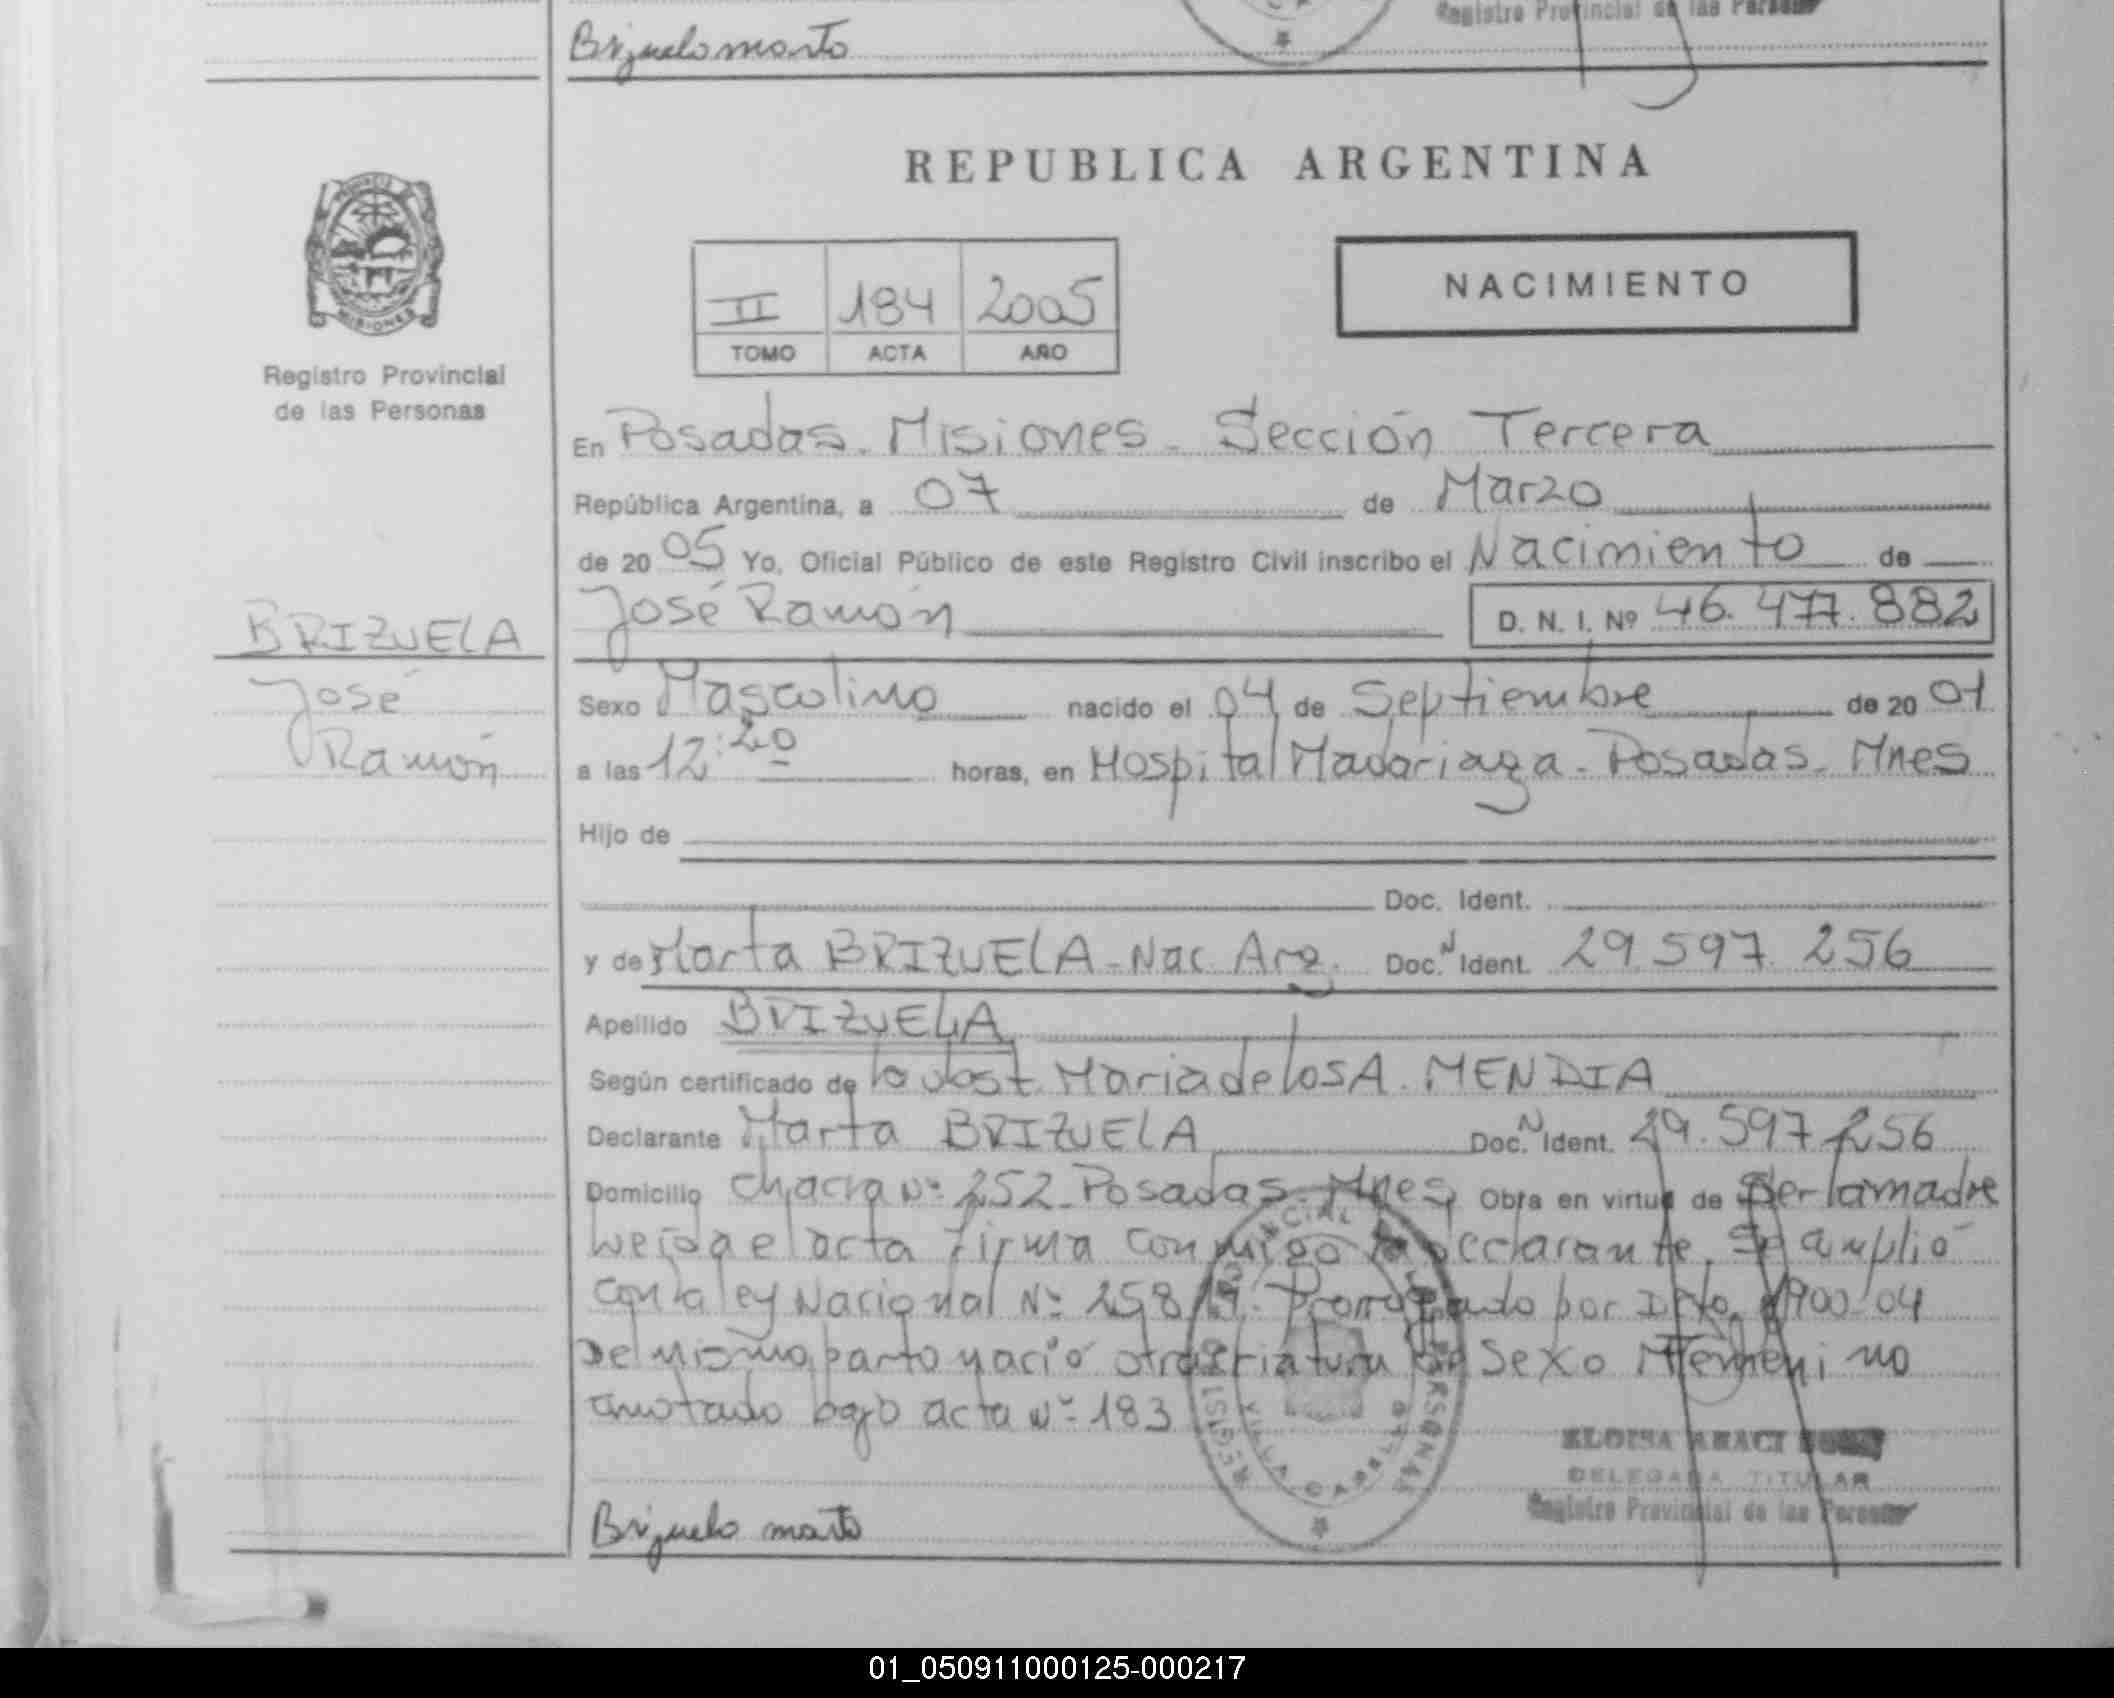 Registro Provincial de las Personas
Brizuela marta
REPUBLICA ARGENTINA
NACIMIENTO
II 184 2005
TOMO ACTA AÑO
MISIONES
Registro Provincial
de las Personas
En Posadas - Misiones - Sección Tercera
República Argentina, a 07 de Marzo
de 20 05 Yo, Oficial Público de este Registro Civil inscribo el Nacimiento de
BRIZUELA
José Ramón
D. N. I. Nº 46.477.882
José
Ramón
Sexo Masculino nacido el 04 de Septiembre de 20 01
a las 12:20 horas, en Hospital Madariaga - Posadas - Mnes
Hijo de
Doc. Ident.
y de Marta BRIZUELA - Nac. Arg. Doc. N Ident. 29.597.256
Apellido BRIZUELA
Según certificado de la obst. Maria de los A. MENDIA
Declarante Marta BRIZUELA Doc. N Ident. 29.597.256
Domicilio chacra Nº 252 - Posadas - Mnes Obra en virtud de Ser la madre
Leida el acta firma conmigo la declarante. Se amplió
con la ley Nacional Nº 25819. Prorrogado por Dcto. 1900-04
Del mismo parto nació otra criatura de Sexo Femenino
anotado bajo acta Nº 183
ELOISA ARACI
DELEGADA TITULAR
Registro Provincial de las Personas
Brizuela marta
01_050911000125-000217